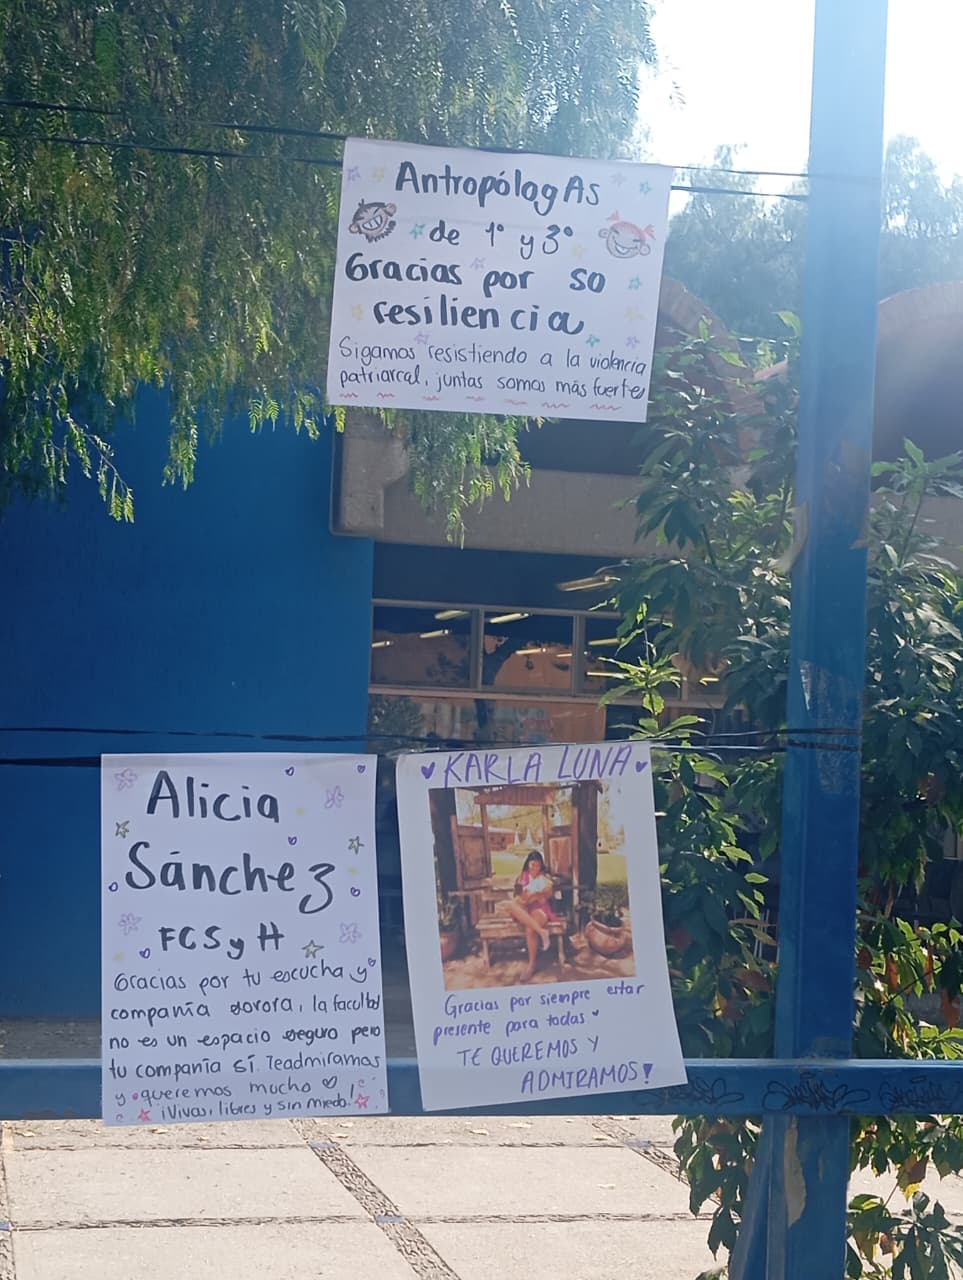 AntropólogAs
de 1° y 3°
Gracias por so
resiliencia
Sigamos resistiendo a la violencia
patriarcal, juntas somos más fuertes
Alicia
Sánchez
FCSyH
Gracias por tu escucha y
compañía sorora, la facultad
no es un espacio seguro pero
tu compañía sí. Teadmiramos
y queremos mucho ♡
¡Vivas, libres y sin miedo!
♥ KARLA LUNA ♥
Gracias por siempre estar
presente para todas ♥
TE QUEREMOS Y
ADMIRAMOS!